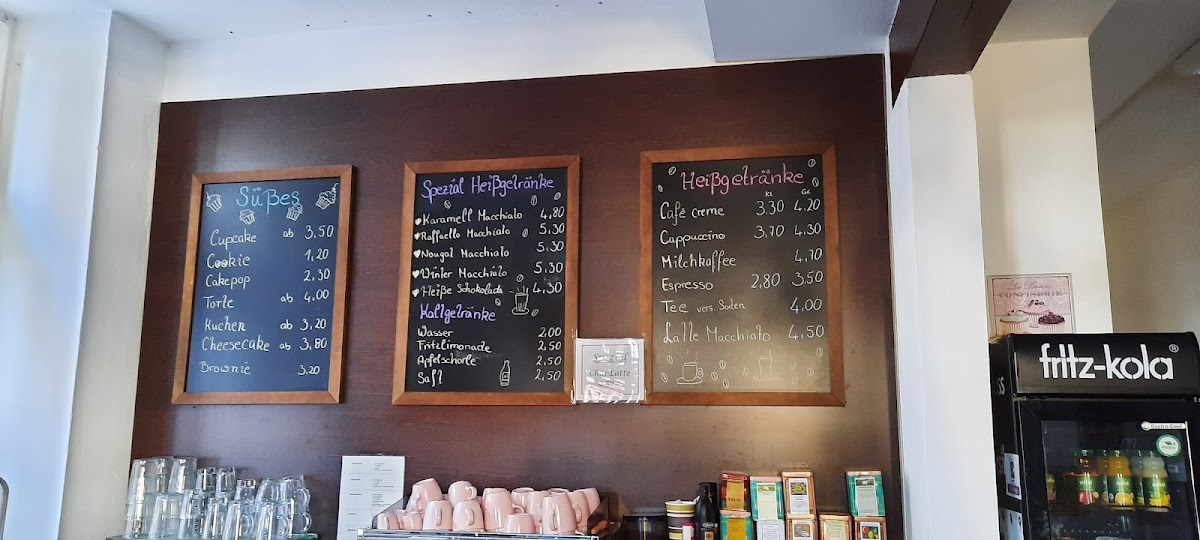 Süßes
Cupcake ab 3,50
Cookie 1,20
Cakepop 2,30
Torte ab 4,00
Kuchen ab 3,20
Cheesecake ab 3,80
Brownie 3,20
Spezial Heißgetränke
Karamell Macchiato 4,80
Raffaello Macchiato 5,30
Nougat Macchiato 5.30
Winter Macchiato 5,30
Heiße Schokolade 4,30
Kaltgetränke
Wasser 2,00
Fritzlimonade 2,50
Apfelschorle 2,50
Saft 2,50
Chai Latte
Heißgetränke
Kl. Gr.
Café creme 3.30 4.20
Cappuccino 3,70 4.30
Milchkaffee 4,70
Espresso 2,80 3,50
Tee vers. Sorten 4,00
Latte Macchiato 4,50
CONFISERIE
fritz-kola®
Gastro-Cool